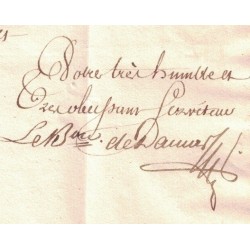 Votre très humble et
Très obeissant Serviteur
Le Bon. de Damas